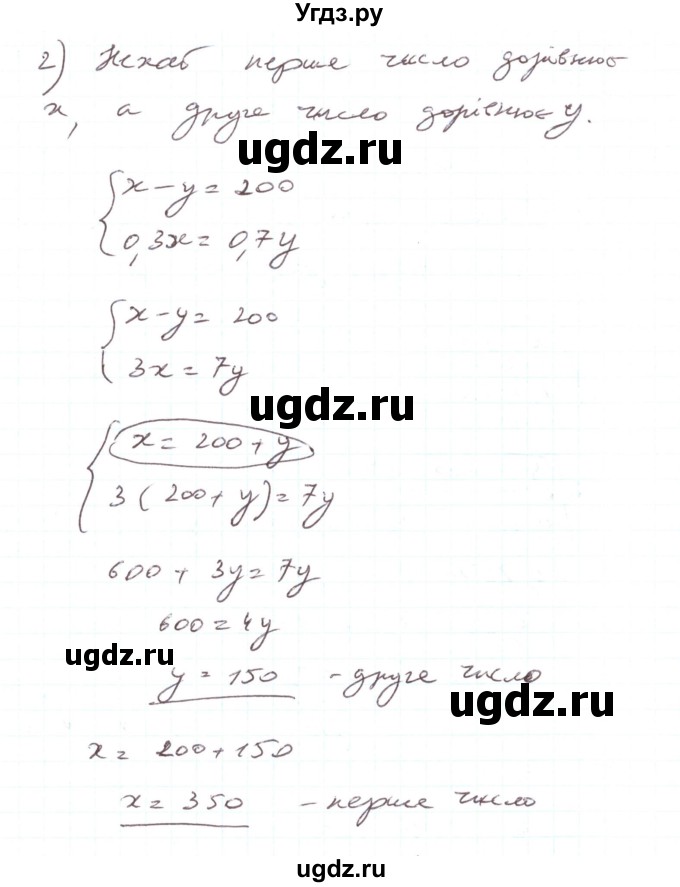 Угдз.ру
2) Нехай перше число дорівнює
x, а друге число дорівнює y.
ugdz.ru
x - y = 200
0,3x = 0,7y
x - y = 200
3x = 7y
ugdz.ru
x = 200 + y
3 (200 + y) = 7y
600 + 3y = 7y
600 = 4y
ugdz.ru
y = 150 - друге число
ugdz.ru
x = 200 + 150
x = 350 - перше число
ugdz.ru